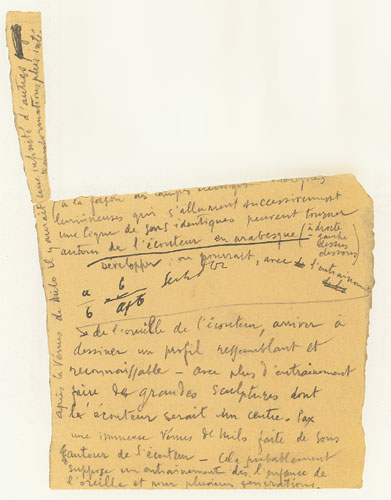 à la façon des lampes électriques
lumineuses qui s'allument successivement
une ligne de sons identiques peuvent tourner
autour de l'écouteur en arabesque (à droite
gauche
dessus
dessous)
développer : on pourrait, avec l'entraînement
a b
b a+b
de l'oreille de l'écouteur, arriver à
dessiner un profil ressemblant et
reconnaissable – avec plus d'entraînement
faire de grandes sculptures dont
l'écouteur serait un centre. Par
une immense Vénus de Milo faite de sons
autour de l'écouteur – Cela probablement
suppose un entraînement dès l'enfance de
l'oreille et pour plusieurs générations.
après la Vénus de Milo il y aurait une infinité d'autres
transformations plus inté